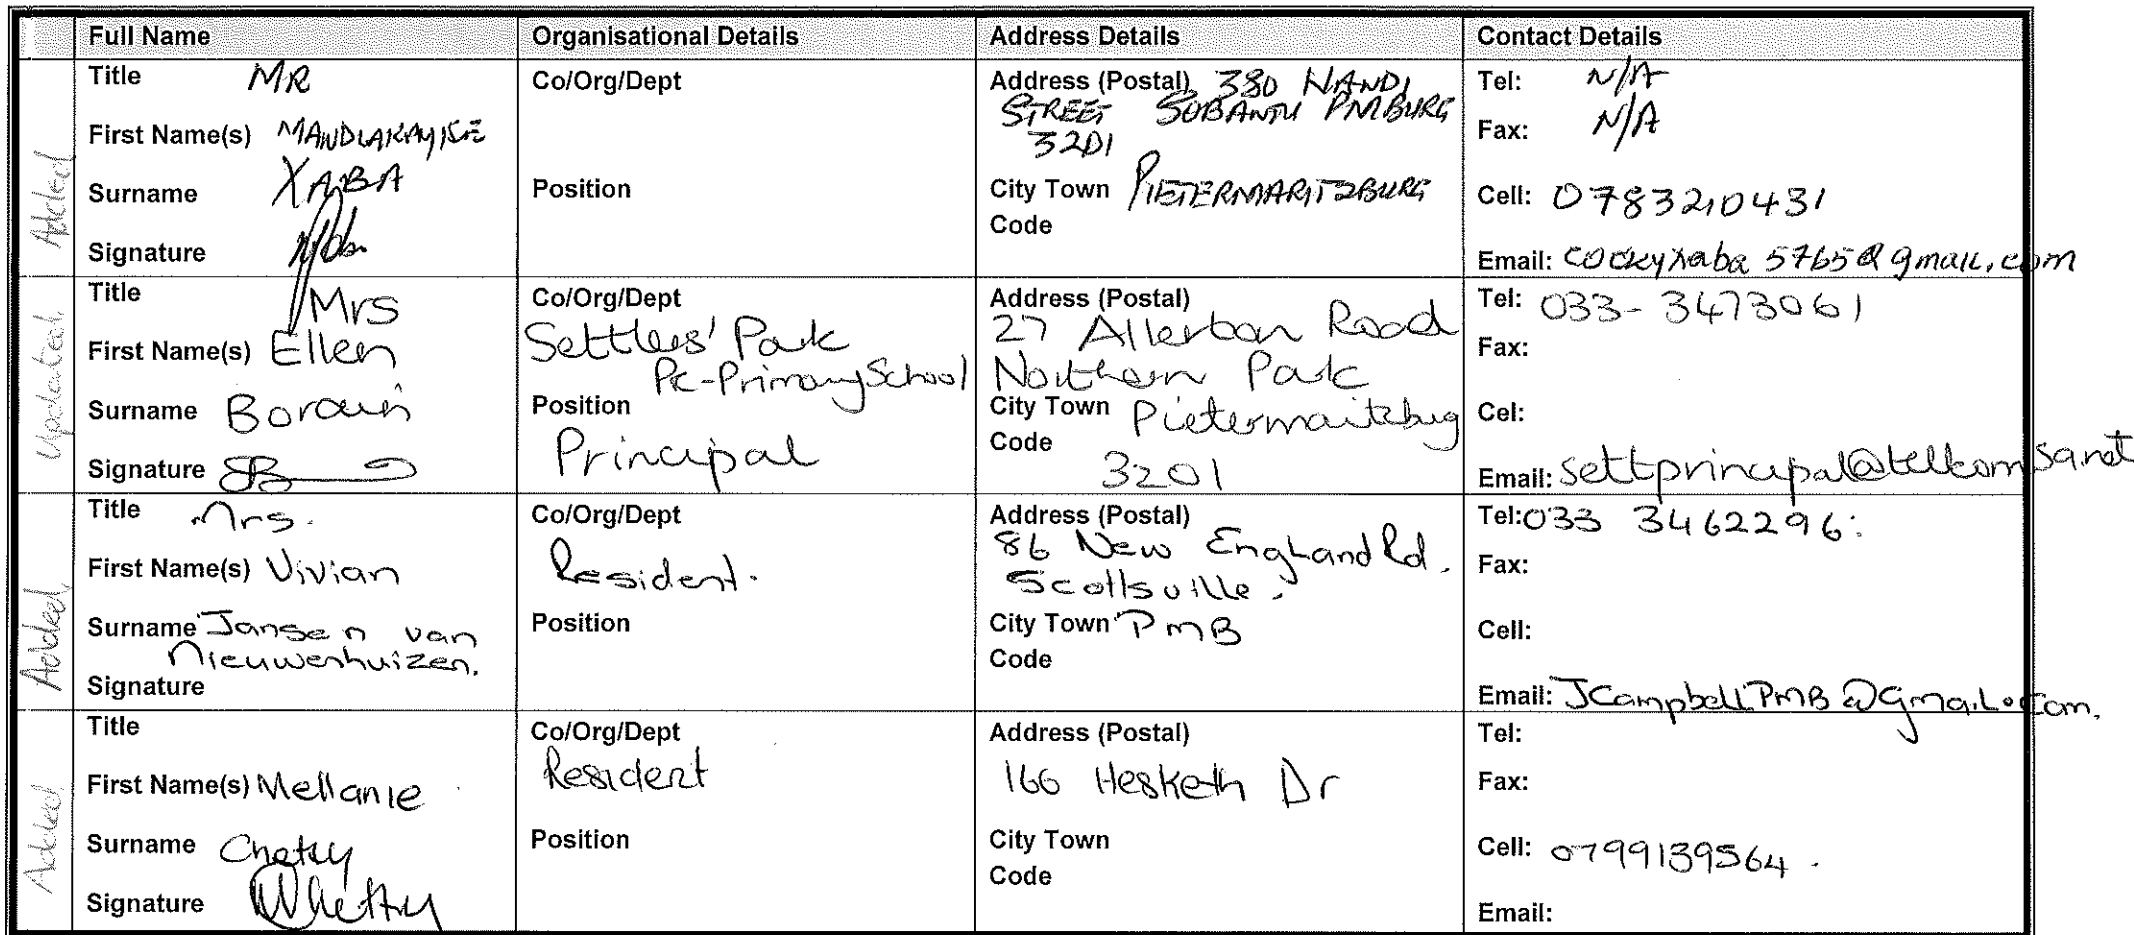 Full Name Organisational Details Address Details Contact Details
Added
Title MR
First Name(s) MANDLAKAYISE
Surname XABA
Signature
Co/Org/Dept
Position
Address (Postal) 380 HANDI
STREET SOBANTU PMBURG
3201
City Town PIETERMARITZBURG
Code
Tel: N/A
Fax: N/A
Cell: 0783210431
Email: cockyxaba5765@gmail.com
Updated
Title Mrs
First Name(s) Ellen
Surname Borain
Signature
Co/Org/Dept
Settlers' Park
Pre-Primary School
Position
Principal
Address (Postal)
27 Allerton Road
Northern Park
City Town Pietermaritzburg
Code
3201
Tel: 033-3473061
Fax:
Cel:
Email: settprincipal@telkomsa.net
Added
Title Mrs.
First Name(s) Vivian
Surname Jansen van
Nieuwenhuizen.
Signature
Co/Org/Dept
Resident.
Position
Address (Postal)
86 New England Rd.
Scottsville.
City Town PMB
Code
Tel: 033 3462296.
Fax:
Cell:
Email: JCampbellPMB@Gmail.com.
Added
Title
First Name(s) Mellanie
Surname Chetty
Signature
Co/Org/Dept
Resident
Position
Address (Postal)
166 Hesketh Dr
City Town
Code
Tel:
Fax:
Cell: 0799139564.
Email: